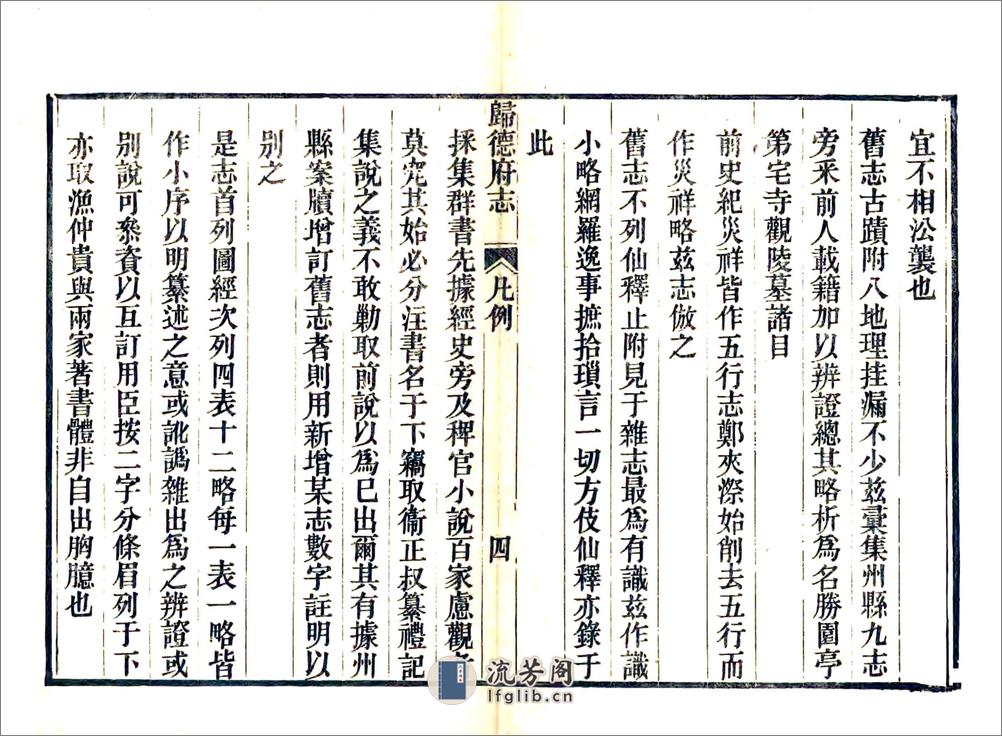 宜不相沿襲也
舊志古蹟附入地理挂漏不少茲彙集州縣九志
旁采前人載籍加以辨證總其略析爲名勝園亭
第宅寺觀陵墓諸目
前史紀災祥皆作五行志鄭夾漈始削去五行而
作災祥略茲志倣之
舊志不列仙釋止附見于雜志最爲有識茲作識
小略網羅逸事摭拾瑣言一切方伎仙釋亦錄于
此
歸德府志 凡例 四
採集群書先據經史旁及稗官小說百家慮觀者
莫究其始必分注書名于下竊取衞正叔纂禮記
集說之義不敢勦取前說以爲已出爾其有據州
縣案牘增訂舊志者則用新增某志數字註明以
别之
是志首列圖經次列四表十二略每一表一略皆
作小序以明纂述之意或訛譌雜出爲之辨證或
别說可叅資以互訂用臣按二字分條眉列于下
亦取漁仲貴與兩家著書體非自出胸臆也
流芳阁
lfglib.cn